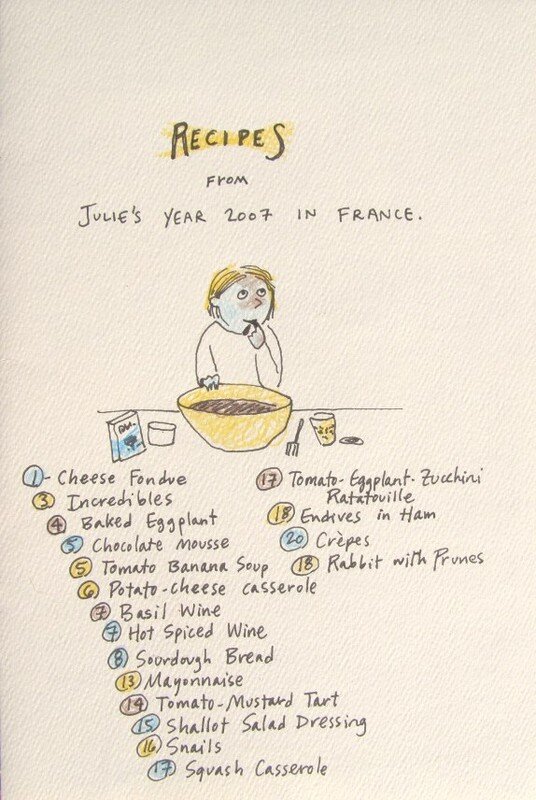 RECIPES
FROM
JULIE'S YEAR 2007 IN FRANCE.
1- Cheese Fondue
3 Incredibles
4 Baked Eggplant
5 Chocolate Mousse
5 Tomato Banana Soup
6 Potato-cheese casserole
7 Basil Wine
7 Hot Spiced Wine
8 Sourdough Bread
13 Mayonnaise
14 Tomato-Mustard Tart
15 Shallot Salad Dressing
16 Snails
17 Squash Casserole
17 Tomato-Eggplant-Zucchini
Ratatouille
18 Endives in Ham
20 Crèpes
18 Rabbit with Prunes